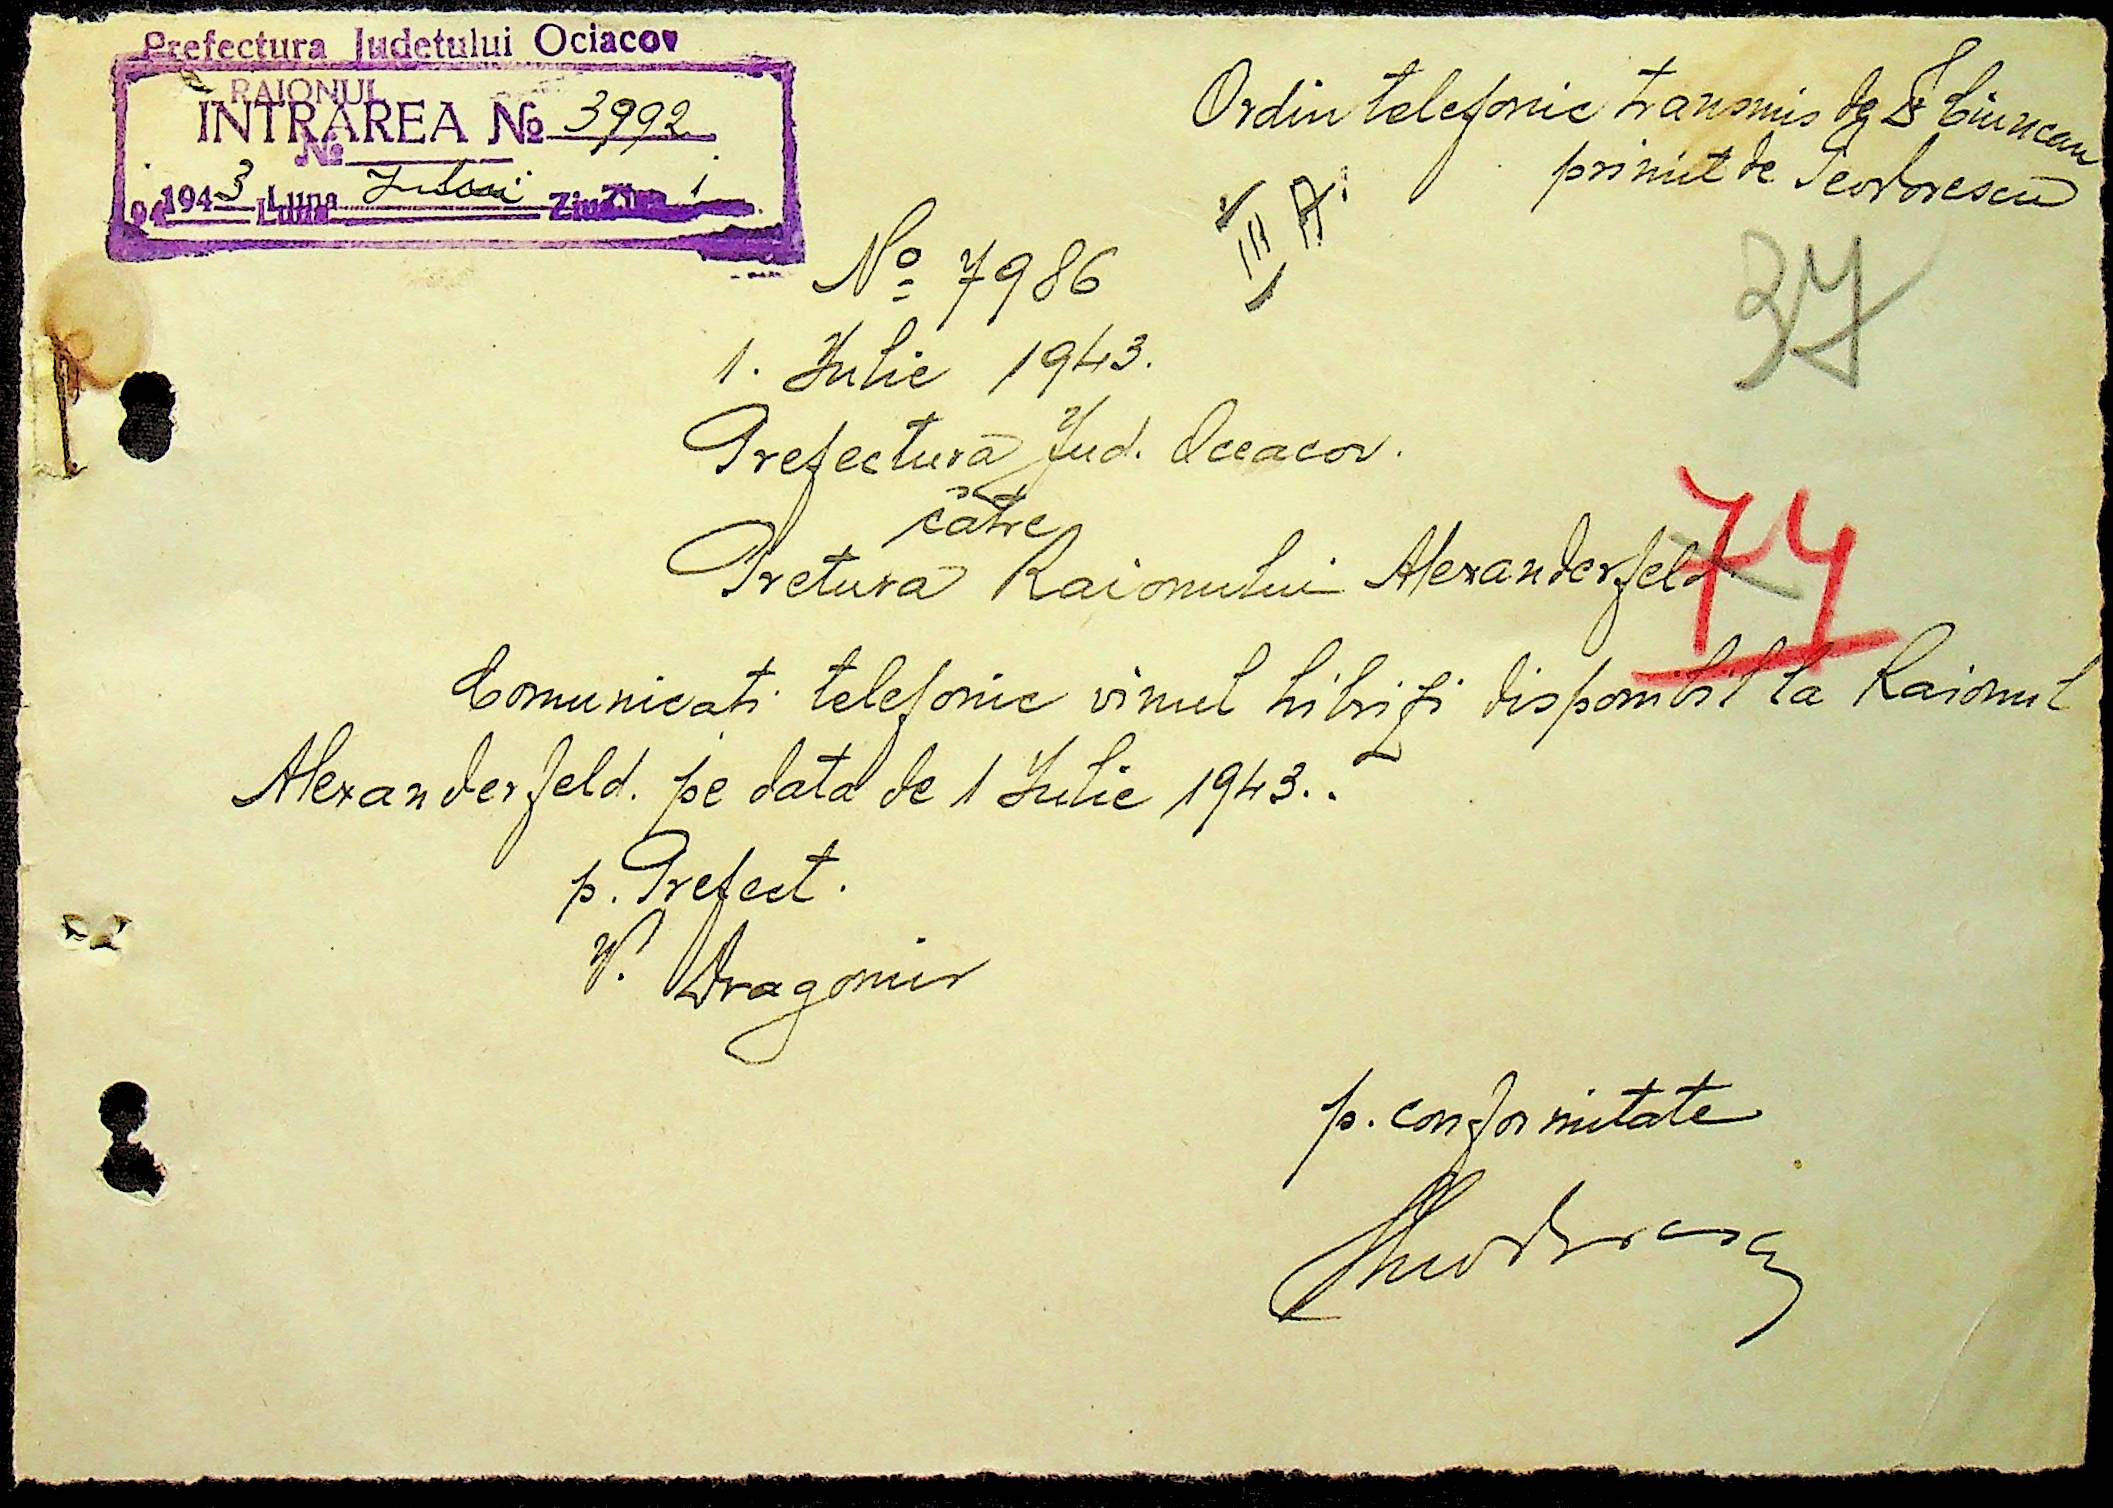 Prefectura Judetului Ociacov
RAIONUL
INTRAREA № 3992
№
1943 Luna Iulie Ziua 1
Ordin telefonic transmis de Ciuncan
primit de Teodorescu
III A.
37
Nº 7986
1. Iulie 1943.
Prefectura Jud. Oceacov.
către
Pretura Raionului Alexanderfeld
74
Comunicati telefonic vinul hibrizi disponibil la Raionul
Alexanderfeld. pe data de 1 Iulie 1943..
p. Prefect.
V. Dragomir
p. conformitate